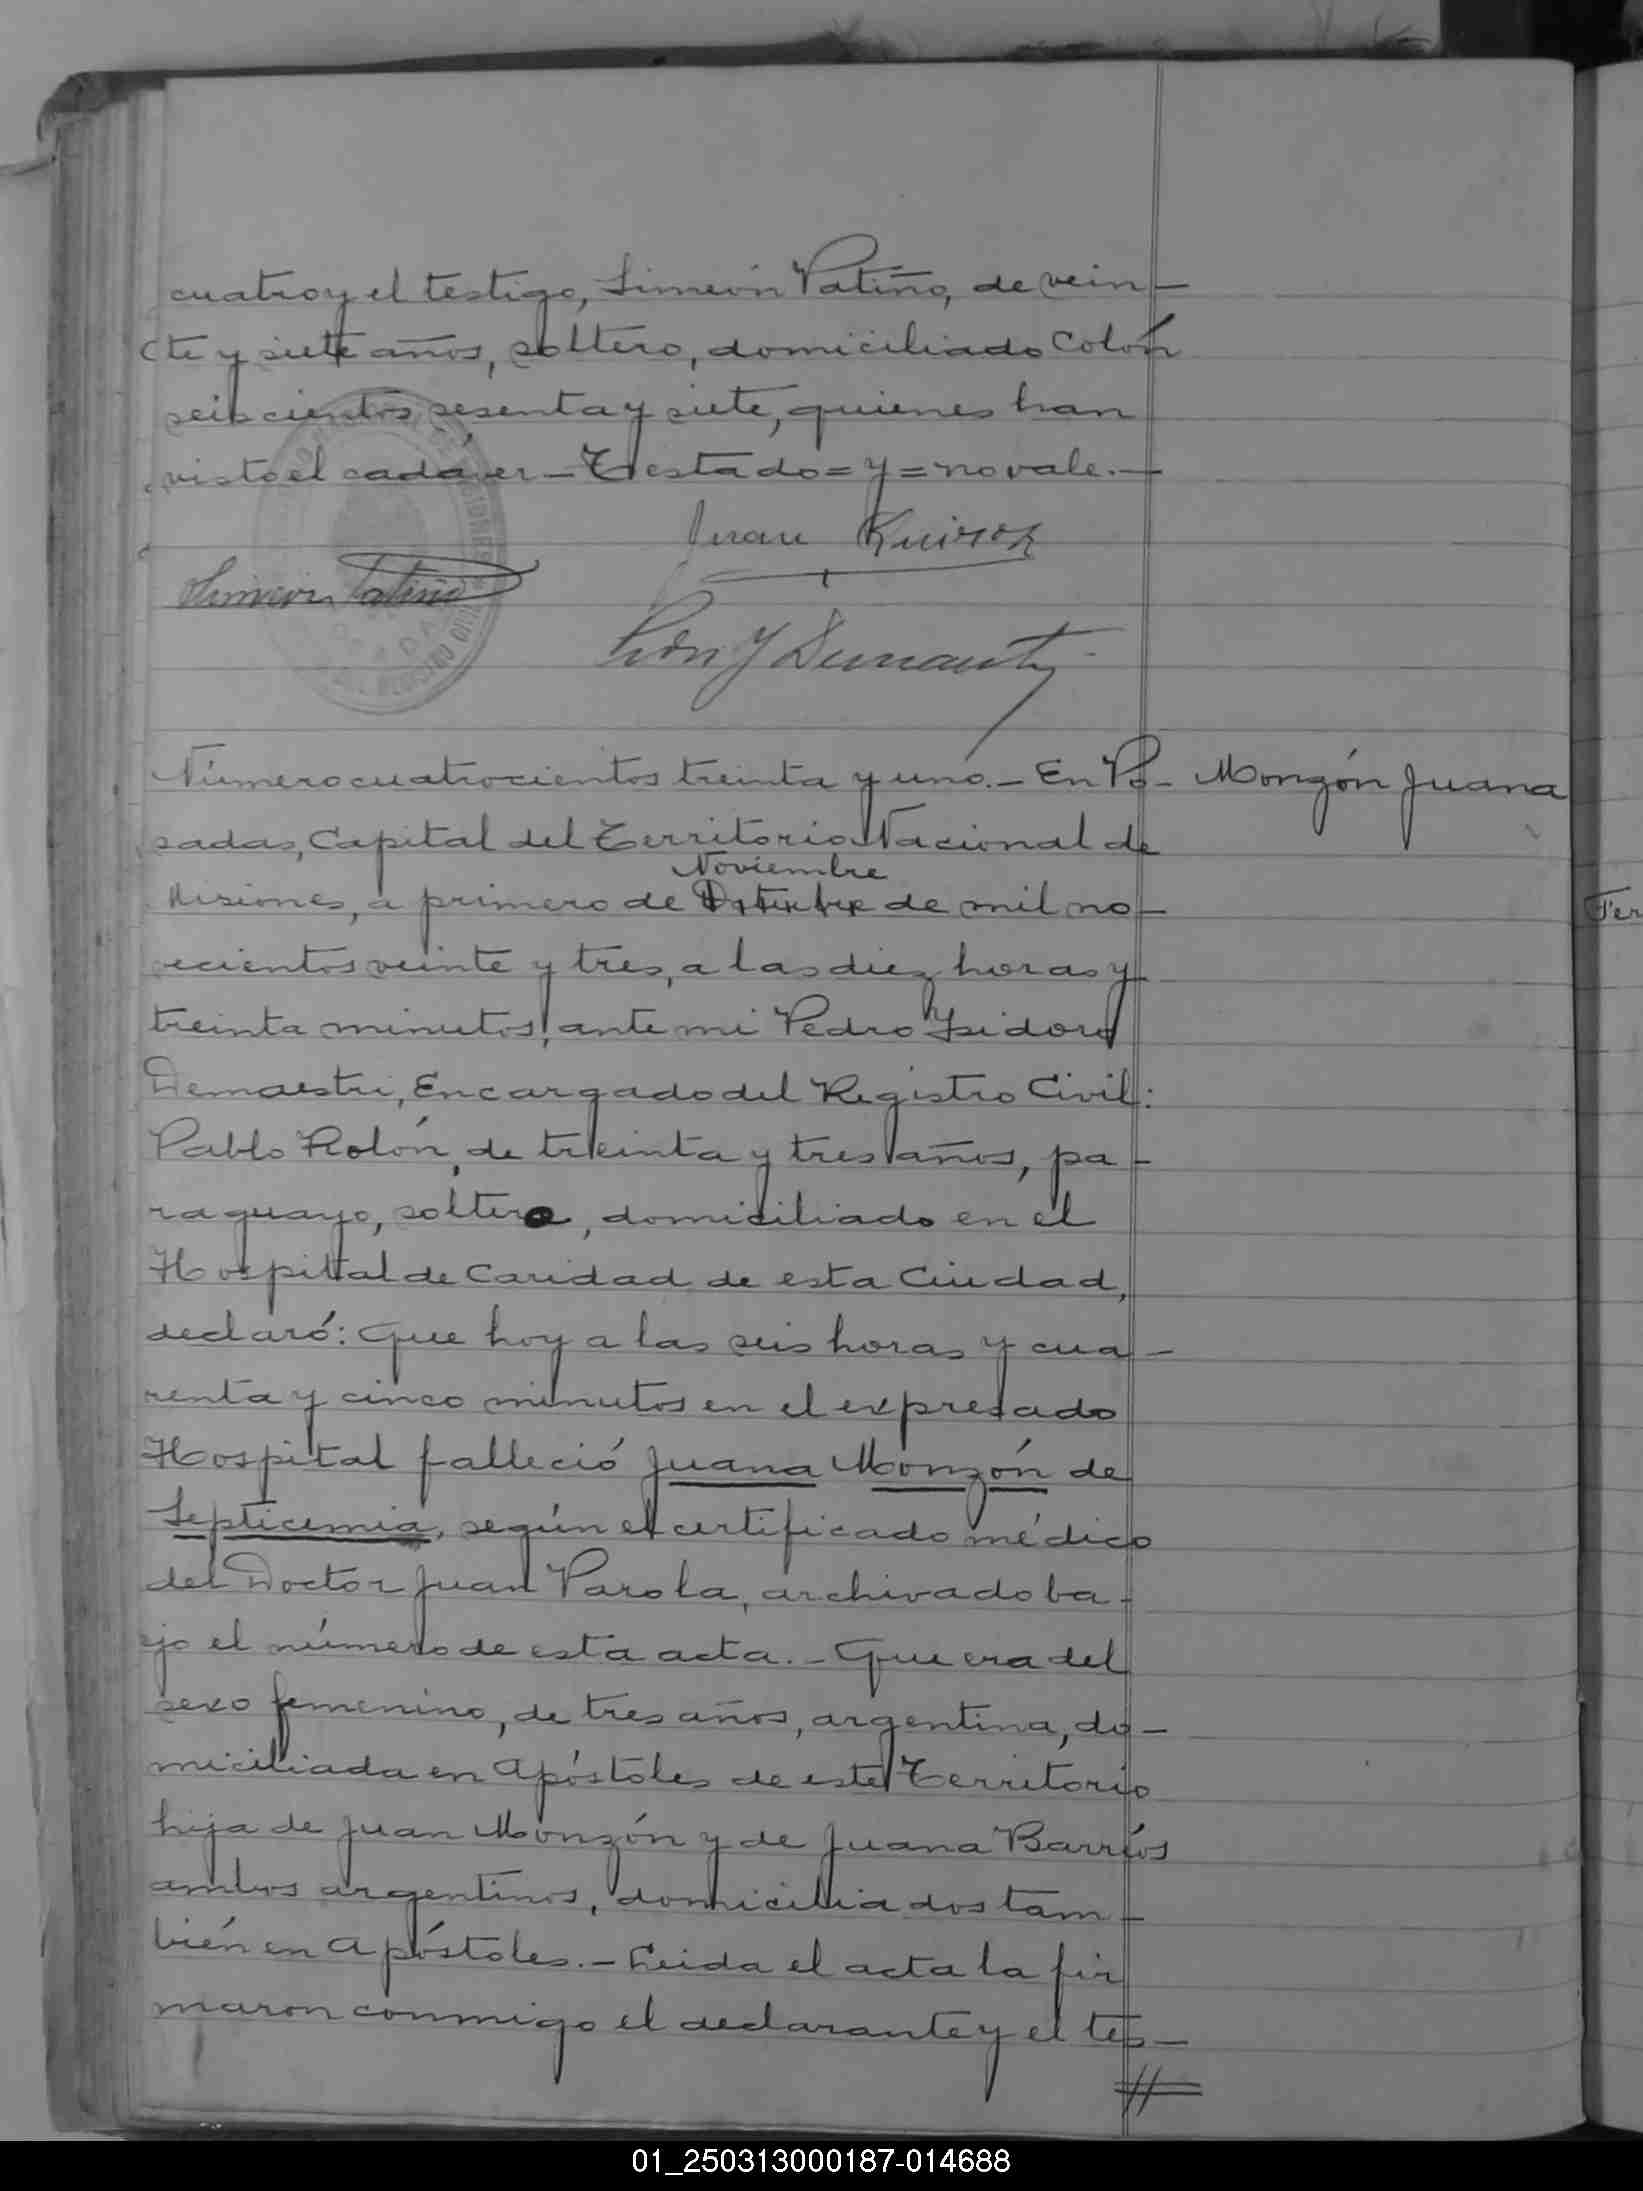 cuatro y el testigo, Simeón Patiño, de vein-
te y siete años, soltero, domiciliado Colón
seiscientos sesenta y siete, quienes han
visto el cadáver - Testado = y = no vale. -
Juan
Simeón Patiño
Número cuatrocientos treinta y uno. - En Po-
Monzón Juana
sadas, Capital del Territorio Nacional de
Noviembre
Misiones, a primero de de mil no-
vecientos veinte y tres, a las diez horas y
treinta minutos, ante mi Pedro Ysidoro
Demaestri, Encargado del Registro Civil:
Pablo Rolón, de treinta y tres años, pa-
raguayo, soltero, domiciliado en el
Hospital de Caridad de esta Ciudad,
declaró: Que hoy a las seis horas y cua-
renta y cinco minutos en el expresado
Hospital falleció Juana Monzón de
Septicemia, según el certificado médico
del Doctor Juan Parola, archivado ba-
jo el número de esta acta. - Que era del
sexo femenino, de tres años, argentina, do-
miciliada en Apóstoles de este Territorio
hija de Juan Monzón y de Juana Barrios
ambos argentinos, domiciliados tam-
bién en Apóstoles. - Leida el acta la fir
maron conmigo el declarante y el tes-
Fer
01_250313000187-014688